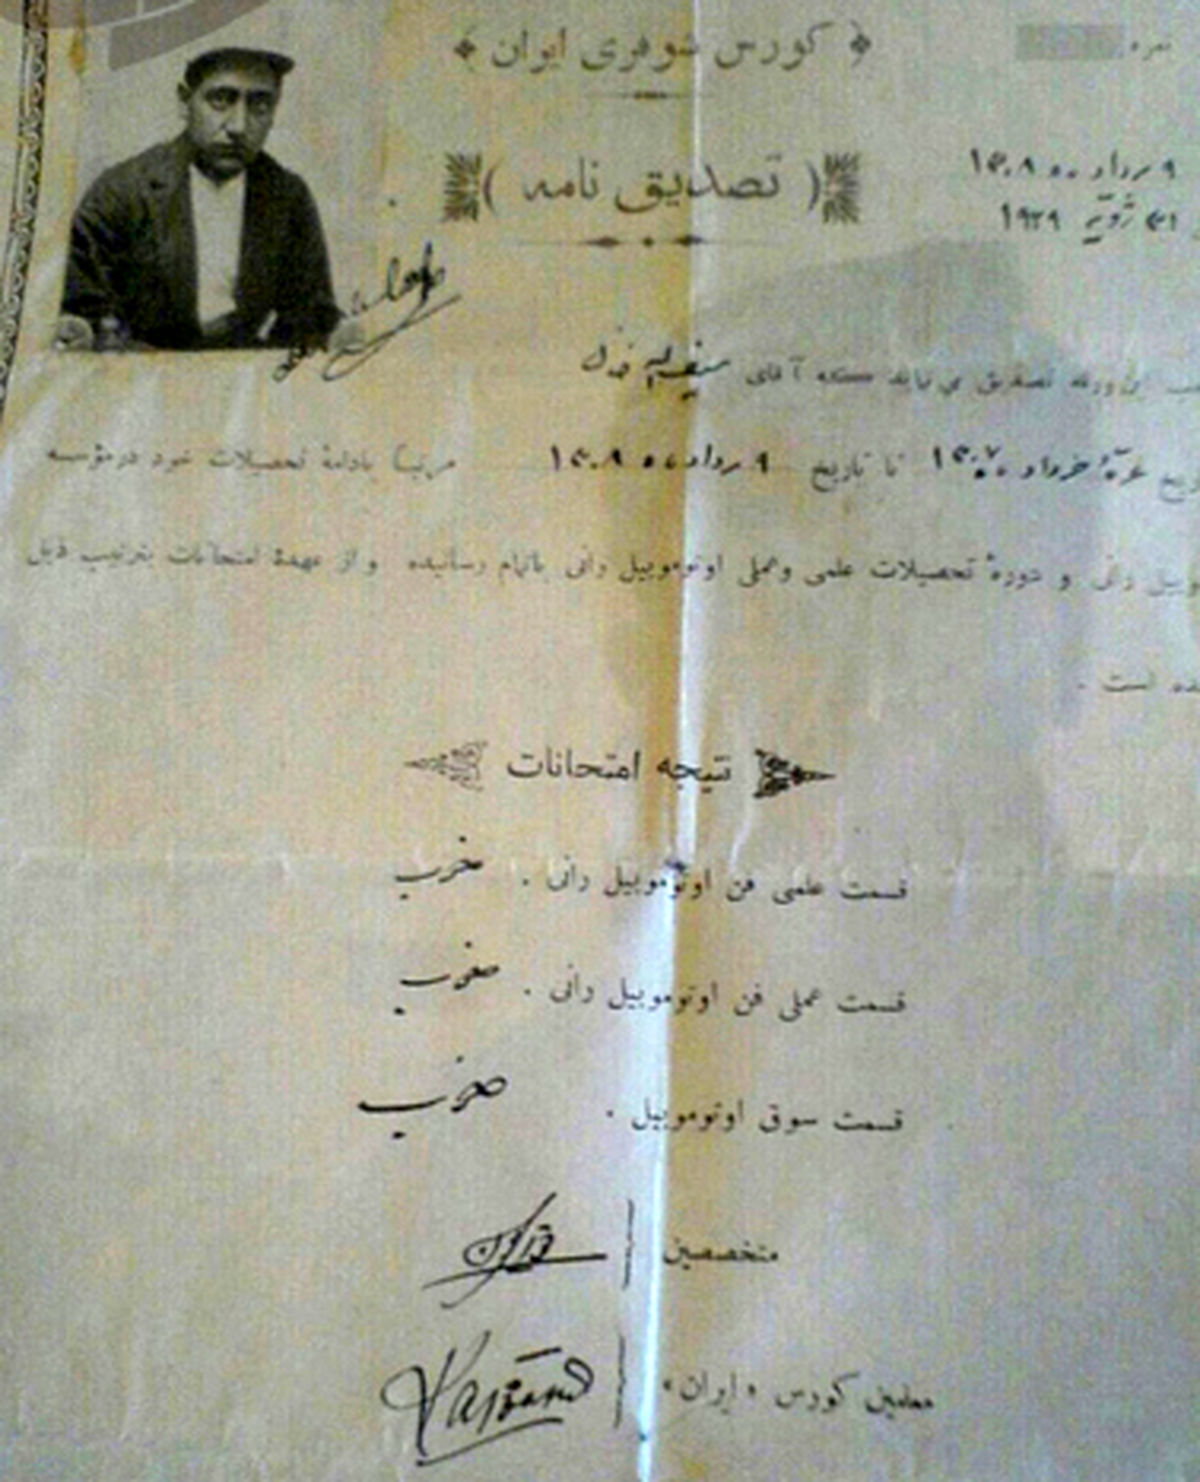 نمره
﴿ کورس شوفری ایران ﴾
۹ مرداد ماه ۱۳۰۸
( تصدیق نامه )
۳۱ ژویه ۱۹۲۹
این ورقه تصدیق می نماید که آقای
خرداد ۱۳۰۷ تا تاریخ ۹ مرداد ماه ۱۳۰۸ مرتباً بادامهٔ تحصیلات خود در مؤسسه
رانی و دورهٔ تحصیلات علمی و عملی اوتوموبیل رانی باتمام رسانیده و از عهدهٔ امتحانات بترتیب ذیل
است .
نتیجه امتحانات
قسمت علمی فن اوتوموبیل رانی . خوب
قسمت عملی فن اوتوموبیل رانی . خوب
قسمت سوق اوتوموبیل . خوب
متخصصین
معلمین کورس « ایران »